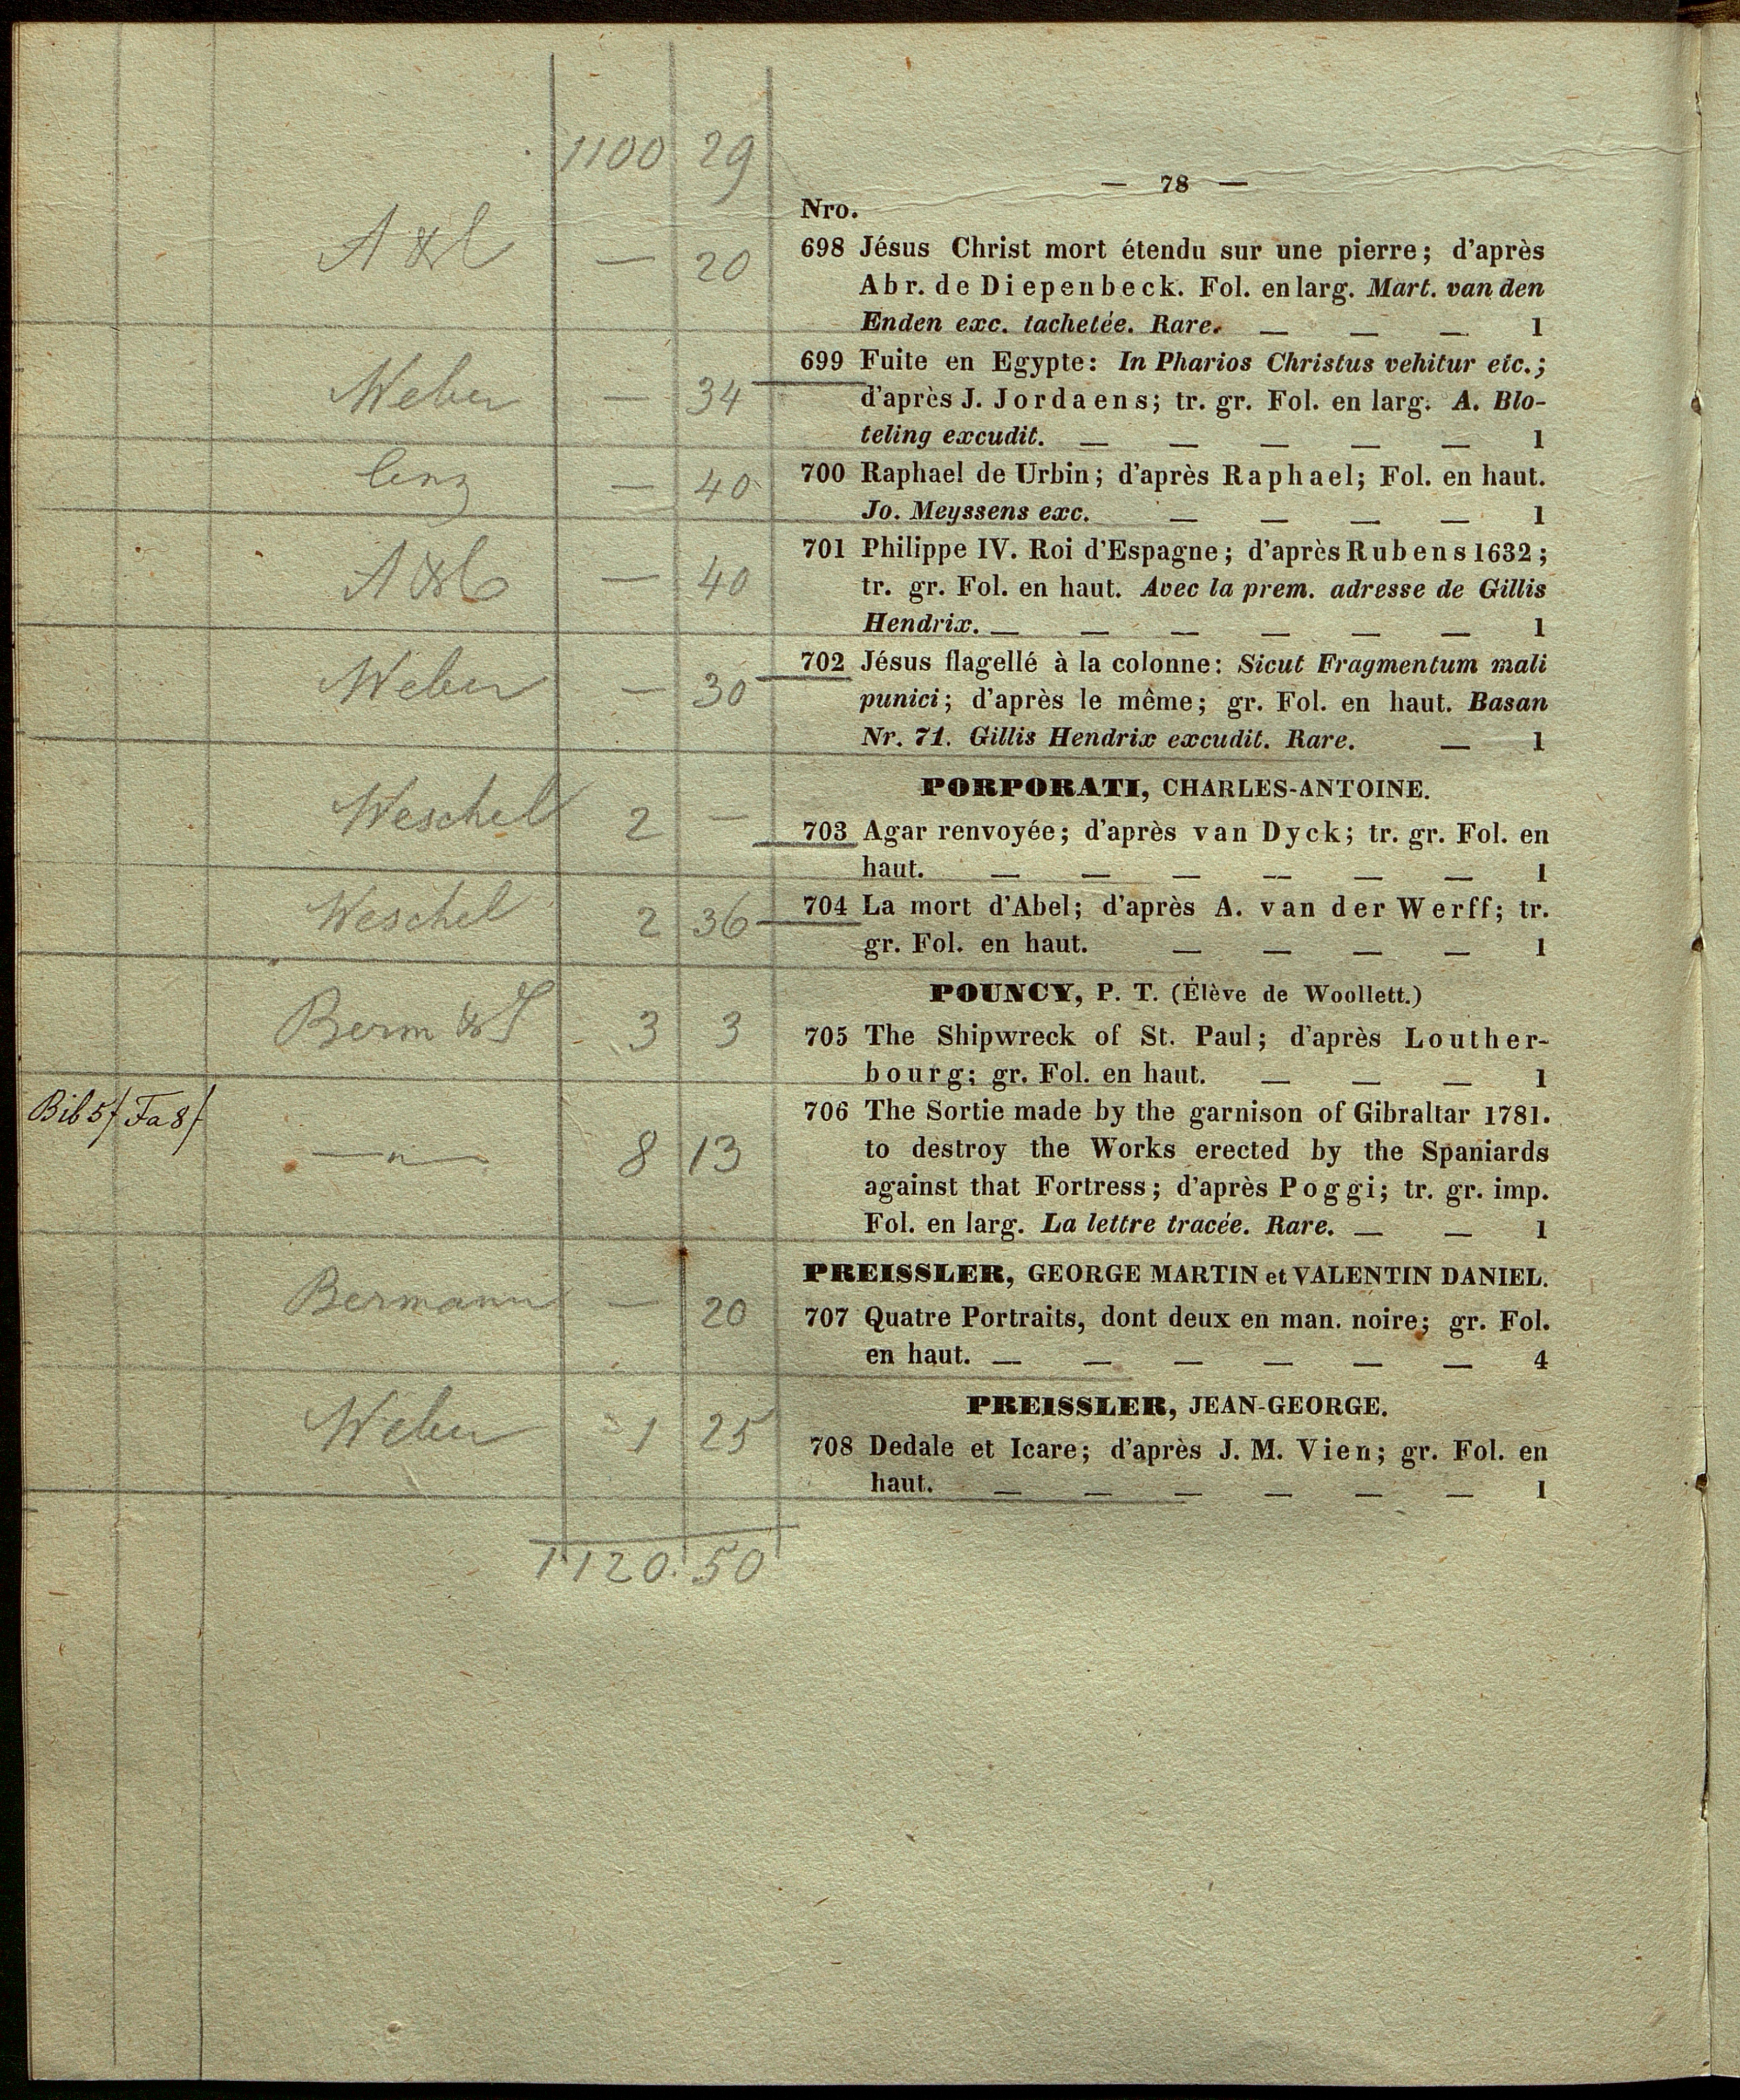 1100 29
— 78 —
Nro.
— 20
698 Jésus Christ mort étendu sur une pierre; d'après
Abr. de Diepenbeck. Fol. en larg. Mart. van den
Enden exc. tachetée. Rare. — — — 1
Weber — 34
699 Fuite en Egypte: In Pharios Christus vehitur etc.;
d'après J. Jordaens; tr. gr. Fol. en larg. A. Blo-
teling excudit. — — — — — 1
— 40
700 Raphael de Urbin; d'après Raphael; Fol. en haut.
Jo. Meyssens exc. — — — — 1
— 40
701 Philippe IV. Roi d'Espagne; d'après Rubens 1632;
tr. gr. Fol. en haut. Avec la prem. adresse de Gillis
Hendrix. — — — — — — 1
Weber — 30
702 Jésus flagellé à la colonne: Sicut Fragmentum mali
punici; d'après le même; gr. Fol. en haut. Basan
Nr. 71. Gillis Hendrix excudit. Rare. — 1
PORPORATI, CHARLES-ANTOINE.
Weschel 2 —
703 Agar renvoyée; d'après van Dyck; tr. gr. Fol. en
haut. — — — — — — 1
Weschel 2 36
704 La mort d'Abel; d'après A. van der Werff; tr.
gr. Fol. en haut. — — — — 1
POUNCY, P. T. (Élève de Woollett.)
Berm & S 3 3
705 The Shipwreck of St. Paul; d'après Louther-
bourg; gr. Fol. en haut. — — — 1
Bib 5f Fa 8f
—"— 8 13
706 The Sortie made by the garnison of Gibraltar 1781.
to destroy the Works erected by the Spaniards
against that Fortress; d'après Poggi; tr. gr. imp.
Fol. en larg. La lettre tracée. Rare. — — 1
PREISSLER, GEORGE MARTIN et VALENTIN DANIEL.
Bermann — 20
707 Quatre Portraits, dont deux en man. noire; gr. Fol.
en haut. — — — — — — 4
PREISSLER, JEAN-GEORGE.
Weber 1 25
708 Dedale et Icare; d'après J. M. Vien; gr. Fol. en
haut. — — — — — — 1
1120. 50